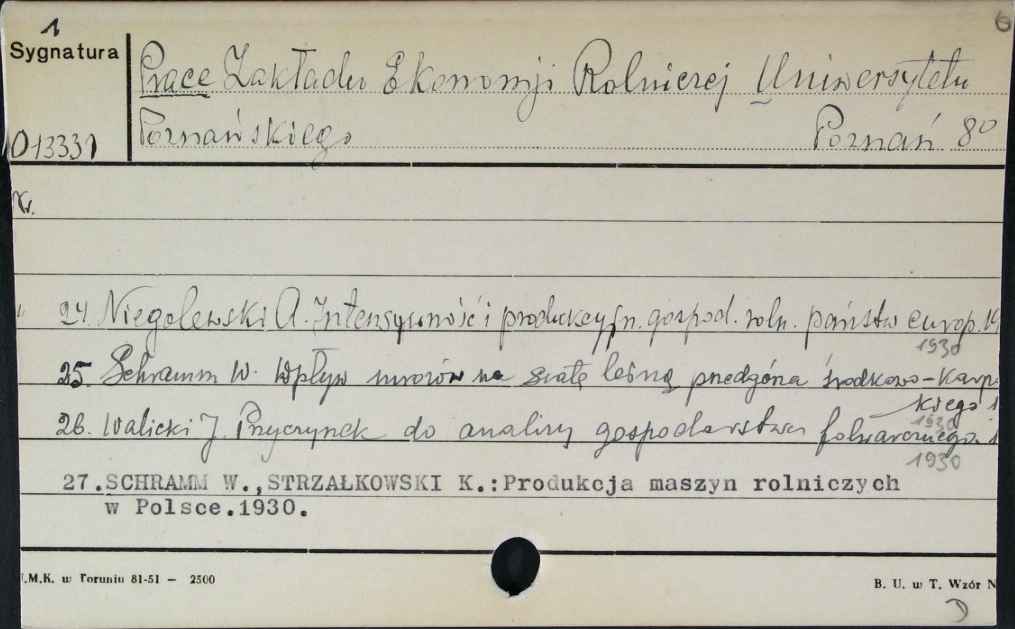 1
6
Sygnatura
Prace Zakładu Ekonomji Rolniczej Uniwersytetu
013331 Poznańskiego Poznań 8°
Nr.
24. Niegolewski A. Intensywność i produkcyjn. gospod. roln. państw europ. 19
1930
25. Schramm W. Wpływ mrozów na szatę leśną przedgórza środkowo-Karp
kiego 1
1930
26. Walicki J. Przyczynek do analizy gospodarstwa folwarcznego. 1
1930
27.SCHRAMM W.,STRZAŁKOWSKI K.:Produkcja maszyn rolniczych
w Polsce.1930.
.M.K. w Toruniu 81-51 — 2500
B. U. w T. Wzór N